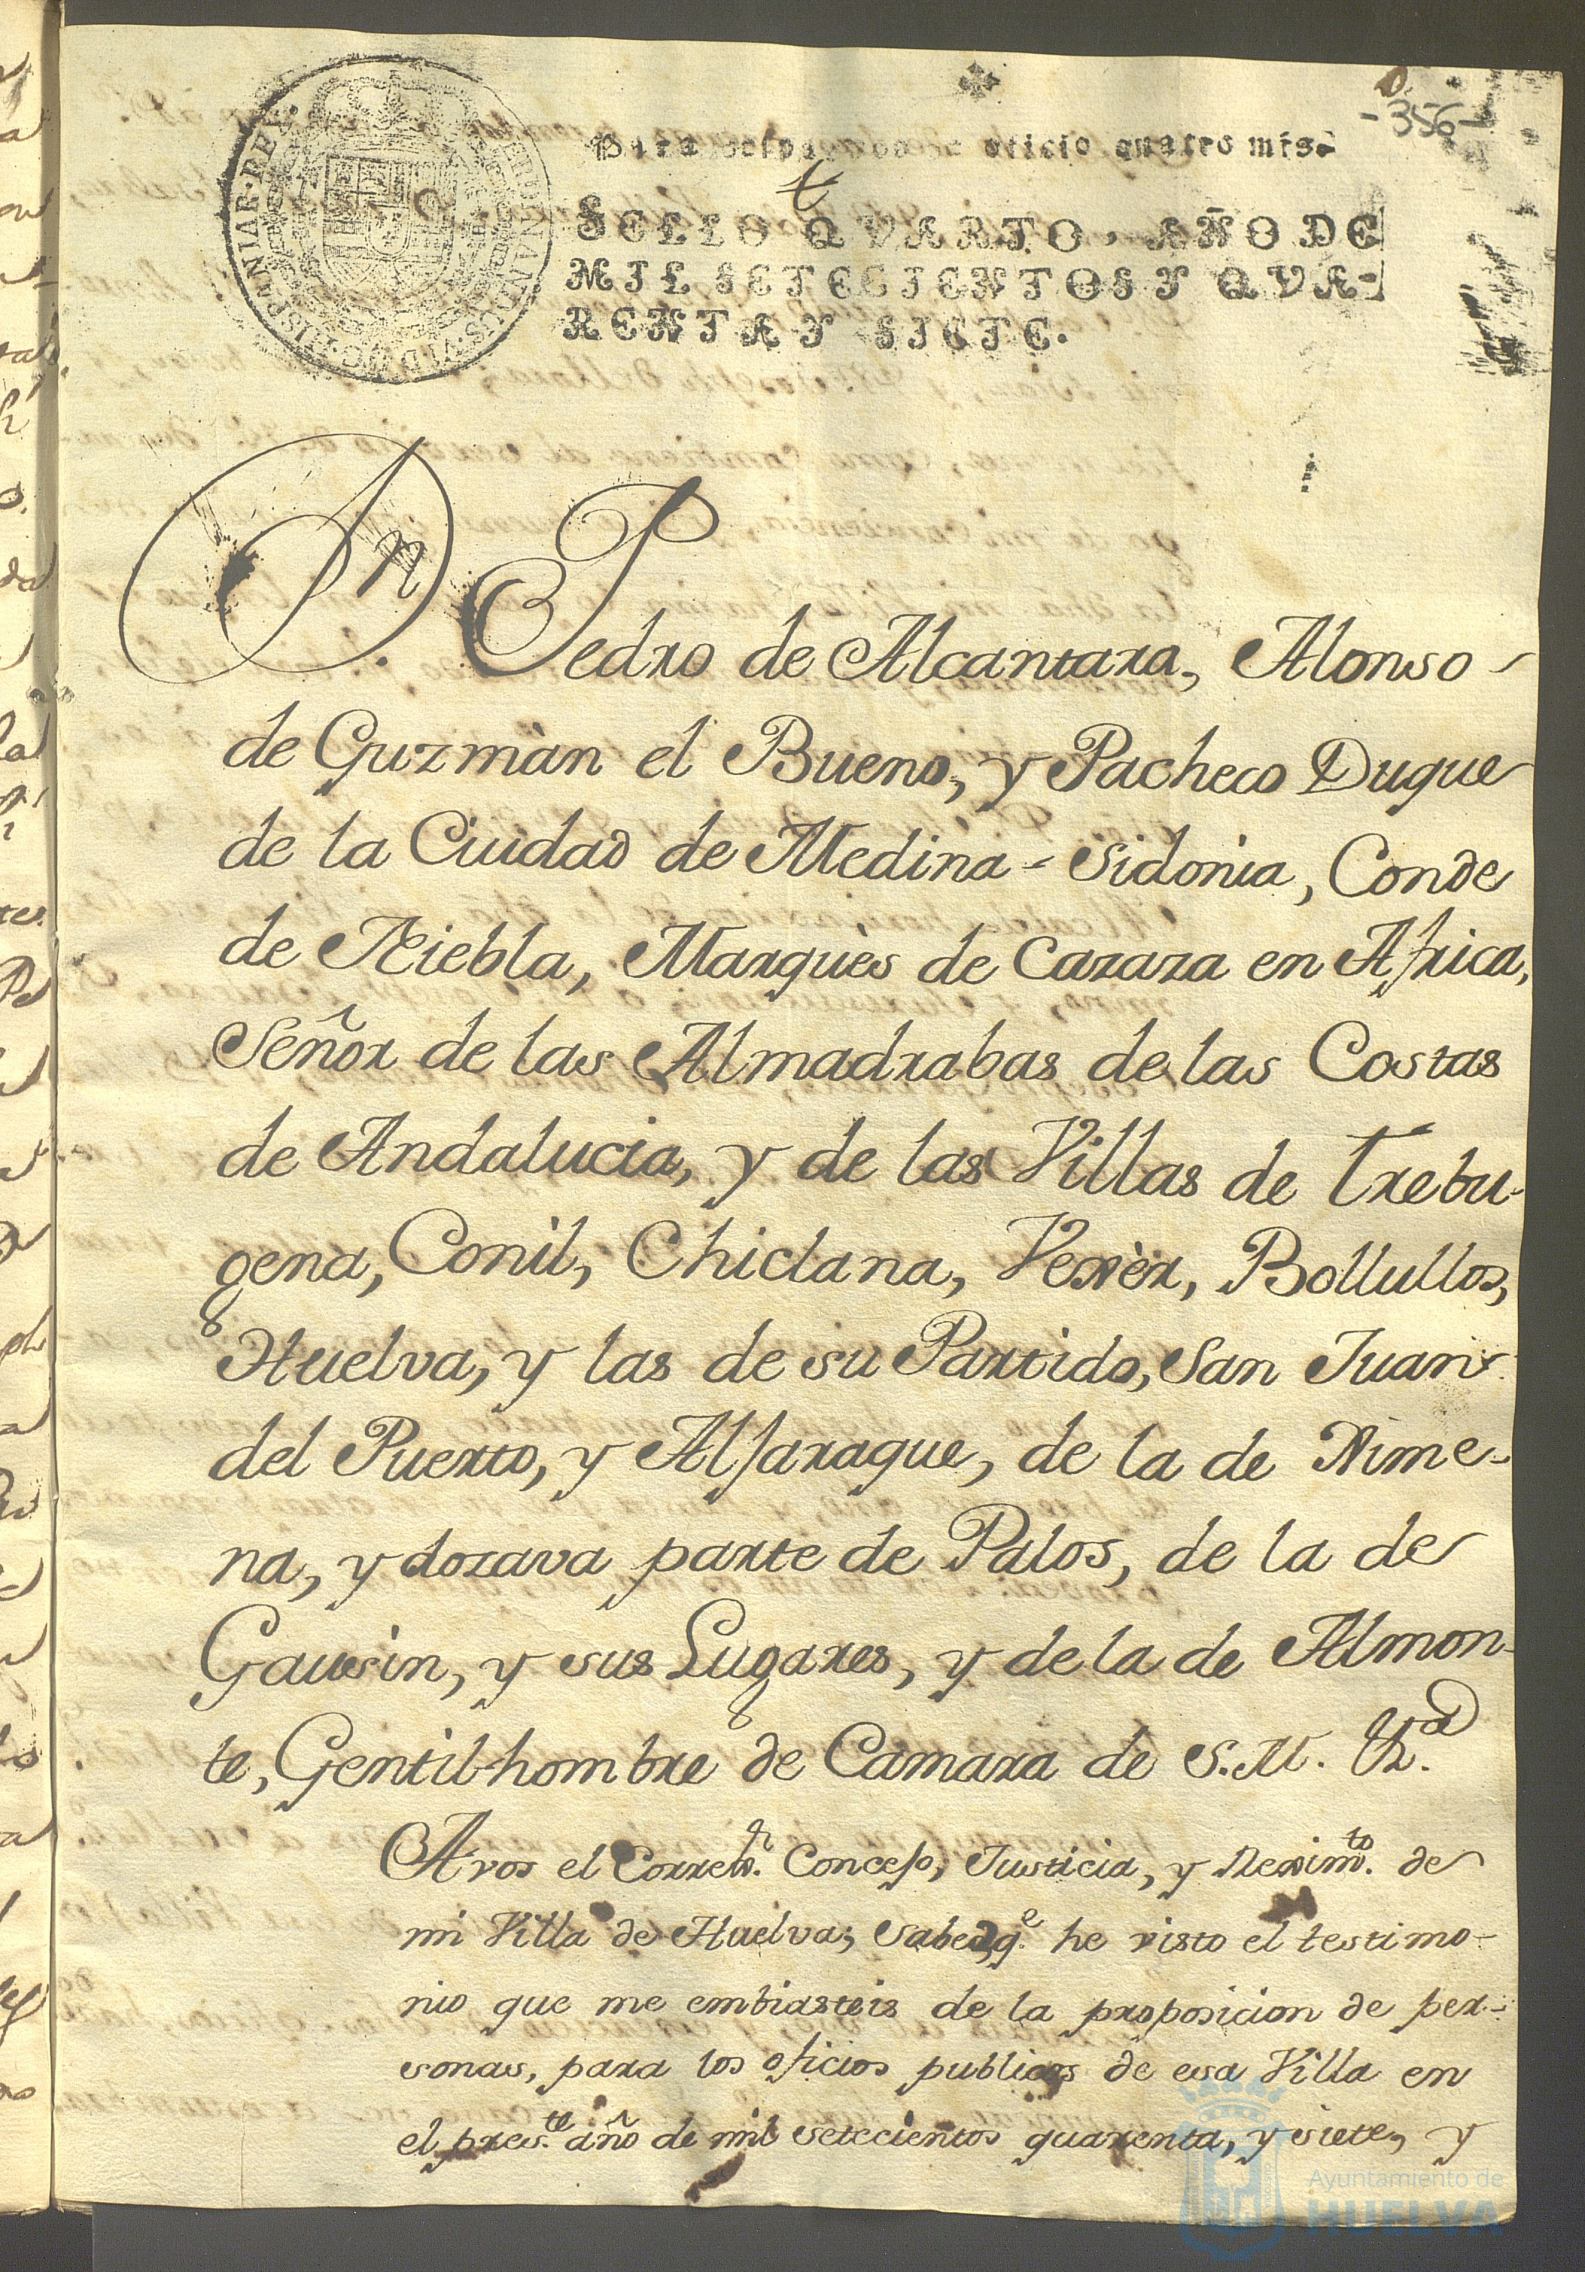 -356-
Para despachos de oficio quatro mrs.
SELLO QVARTO, AÑO DE
MIL SETECIENTOS Y QVA-
RENTA Y SIETE.
Dn. Pedro de Alcantara, Alonso
de Guzmàn el Bueno, y Pacheco Duque
de la Ciudad de Medina-Sidonia, Conde
de Niebla, Marquès de Cazaza en Africa,
Señor de las Almadrabas de las Costas
de Andalucia, y de las Villas de Trebu-
gena, Conil, Chiclana, Vexèr, Bollullos,
Huelva, y las de su Partido, San Juan
del Puerto, y Alfaraque, de la de Xime-
na, y dozava parte de Palos, de la de
Gausin, y sus Lugares, y de la de Almon-
te, Gentil-hombre de Camara de S. M. &a.
A vos el Correxr. Concejo, Justicia, y Reximto. de
mi Villa de Huelva; Sabed qe. he visto el testimo-
nio que me embiasteis de la proposicion de per-
sonas, para los oficios publicos de esa Villa en
el preste. año de mil setecientos quarenta, y siete, y
Ayuntamiento de
HUELVA